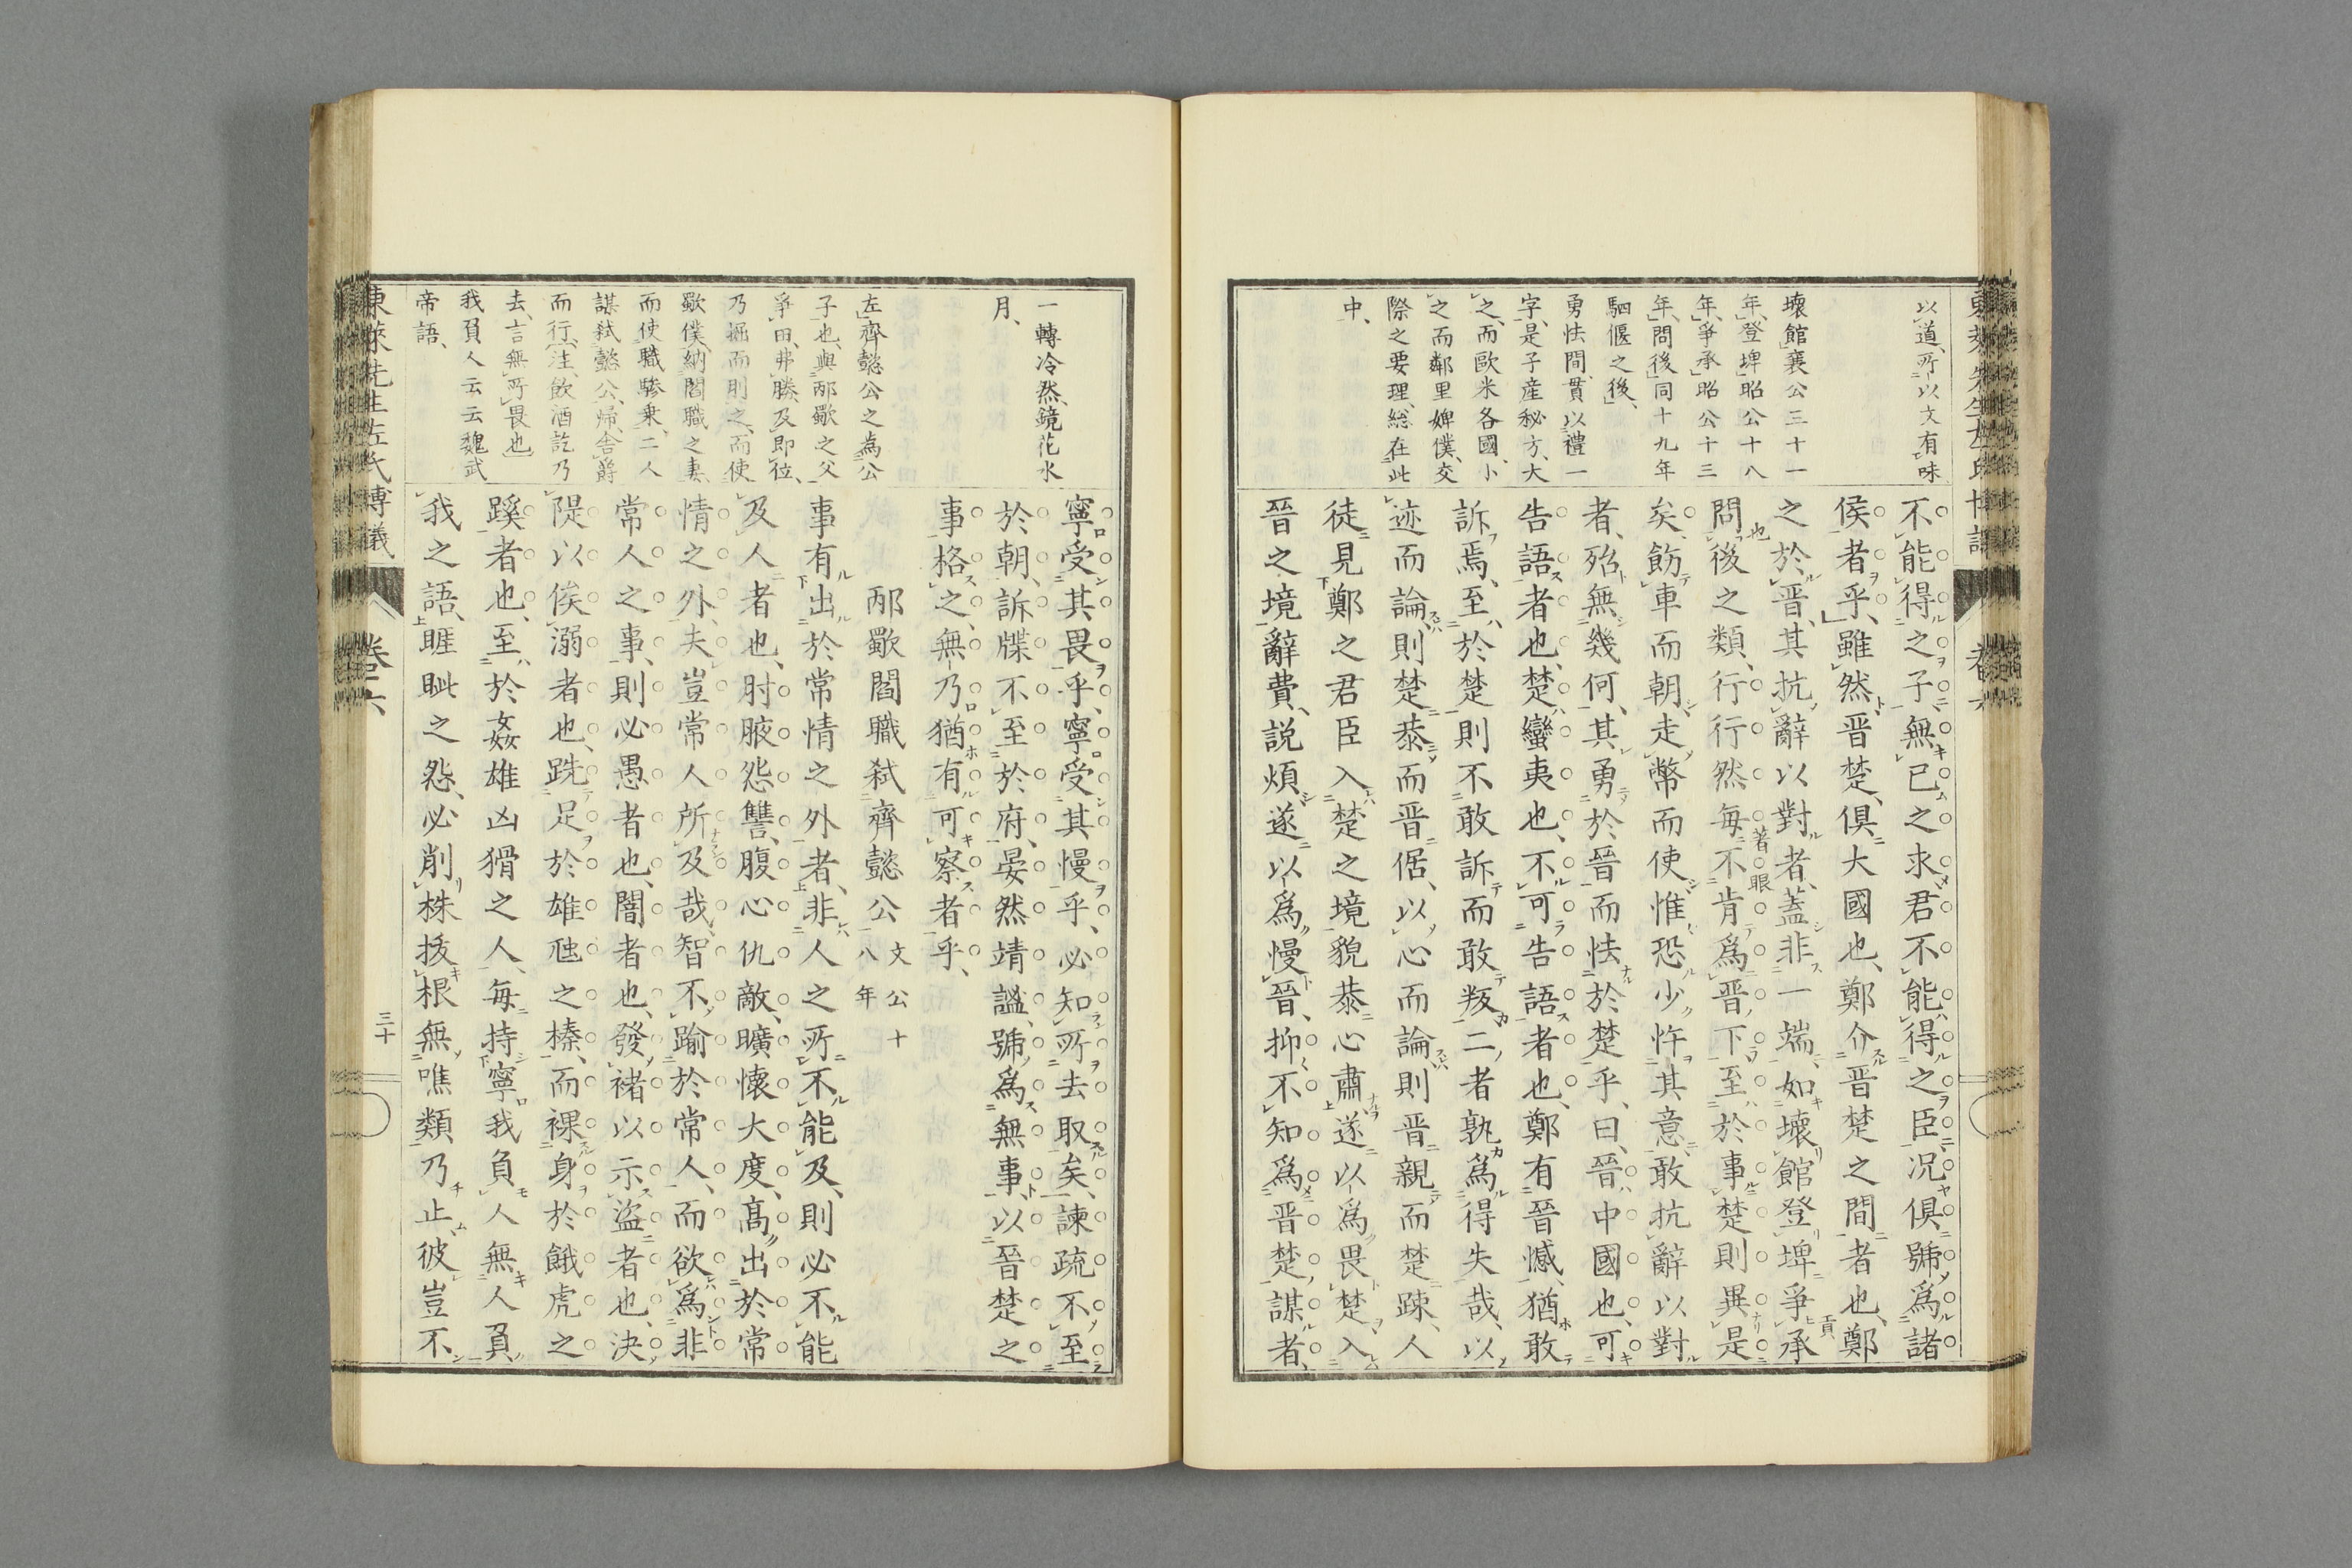 以道、所以文有味
壞館襄公三十一
年、登埤昭公十八
年、爭承昭公十三
年、問後同十九年
駟偃之後、
勇怯間、貫以禮一
字、是子産秘方、大
之、而歐米各國、小
之而鄰里婢僕、交
際之要理、総在此
中、
不能得之子、無已之求、君不能得之臣、况俱號爲諸
侯者乎、雖然、晋楚、俱大國也、鄭介晋楚之間者也、鄭
之於晋、其抗辭以對者、蓋非一端、如壞館登埤爭承
問後之類、行行然每不肯爲晋下、至於事楚則異是
矣、飭車而朝、走幣而使、惟恐少忤其意、敢抗辭以對
者、殆無幾何、其勇於晉而怯於楚乎、曰、晉中國也、可
告語者也、楚蠻夷也、不可告語者也、鄭有晉憾、猶敢
訴焉、至於楚則不敢訴而敢叛、二者孰爲得失哉、以
迹而論、則楚恭而晋倨、以心而論則晋親而楚踈、人
徒見鄭之君臣入楚之境貌恭心肅、遂以爲畏楚、入
晉之境辭費、説煩遂以爲慢晋、抑不知爲晋楚謀者、
一轉冷然、鏡花水
月、
左齊懿公之為公
子也、與邴歜之父
爭田、弗勝、及即位、
乃掘而刖之、而使
歜僕、納閻職之妻、
而使職驂乗、二人
謀弑懿公、帰、舎爵
而行、注、飲酒訖乃
去、言無所畏也
我負人云云魏武
帝語、
寧受其畏乎、寧受其慢乎、必知所去取矣、諫疏不至
於朝、訴牒不至於府、晏然靖謐、號爲無事、以晉楚之
事格之、無乃猶有可察者乎、
邴歜閻職弑齊懿公 文公十八年
事有出於常情之外者、非人之所不能及、則必不能
及人者也、肘腋怨讐、腹心仇敵、曠懷大度、髙出於常
情之外、夫豈常人所及哉、智不踰於常人、而欲爲非
常人之事、則必愚者也、闇者也、發褚以示盜者也、決
隄以俟溺者也、跣足於雄虺之榛、而裸身於餓虎之
蹊者也、至於姦雄凶猾之人、每持寧我負人無人負
我之語、睚眦之怨、必削株抜根無噍類乃止彼豈不
東萊先生左氏博議
卷之六
三十